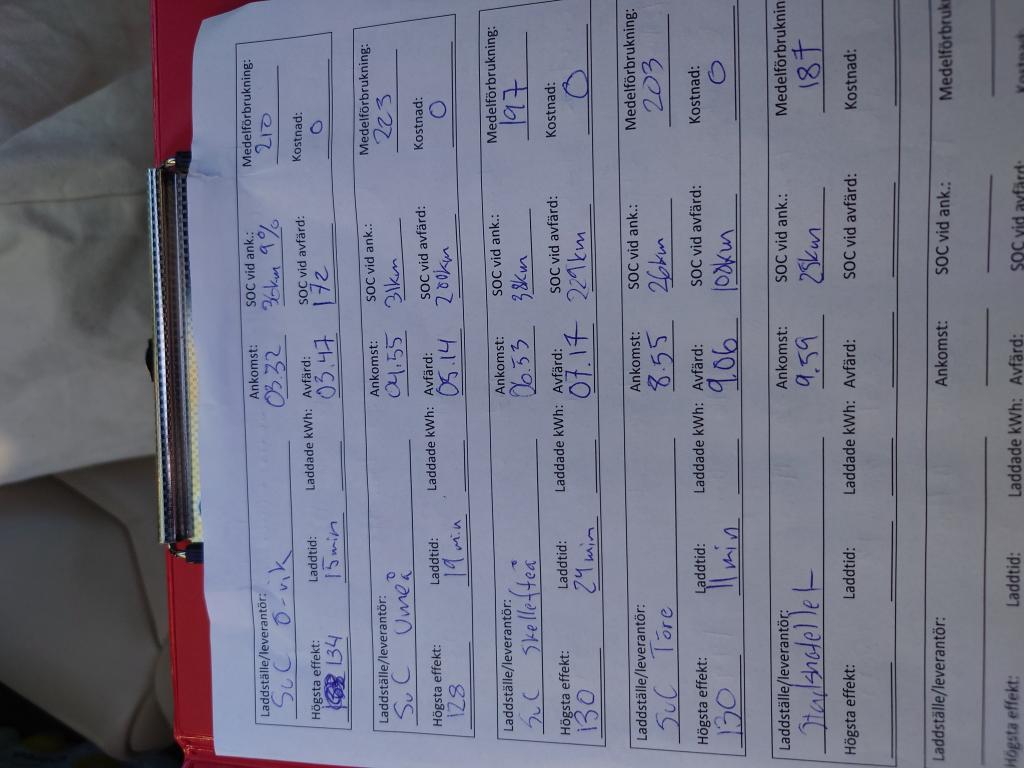 Laddställe/leverantör: Ankomst: SOC vid ank.: Medelförbrukning:
SuC Ö-vik 03.32 36km 9% 210
Högsta effekt: Laddtid: Laddade kWh: Avfärd: SOC vid avfärd: Kostnad:
134 15min 03.47 172 0
Laddställe/leverantör: Ankomst: SOC vid ank.: Medelförbrukning:
SuC Umeå 04.55 31km 223
Högsta effekt: Laddtid: Laddade kWh: Avfärd: SOC vid avfärd: Kostnad:
128 19min 05.14 200km 0
Laddställe/leverantör: Ankomst: SOC vid ank.: Medelförbrukning:
SuC Skellefteå 06.53 38km 197
Högsta effekt: Laddtid: Laddade kWh: Avfärd: SOC vid avfärd: Kostnad:
130 24min 07.17 229km 0
Laddställe/leverantör: Ankomst: SOC vid ank.: Medelförbrukning:
SuC Töre 8.55 26km 203
Högsta effekt: Laddtid: Laddade kWh: Avfärd: SOC vid avfärd: Kostnad:
130 11min 9.06 108km 0
Laddställe/leverantör: Ankomst: SOC vid ank.: Medelförbrukning:
9.59 28km 187
Högsta effekt: Laddtid: Laddade kWh: Avfärd: SOC vid avfärd: Kostnad:
Laddställe/leverantör: Ankomst: SOC vid ank.: Medelförbrukn
Högsta effekt: Laddtid: Laddade kWh: Avfärd: SOC vid avfärd: Kostnad: